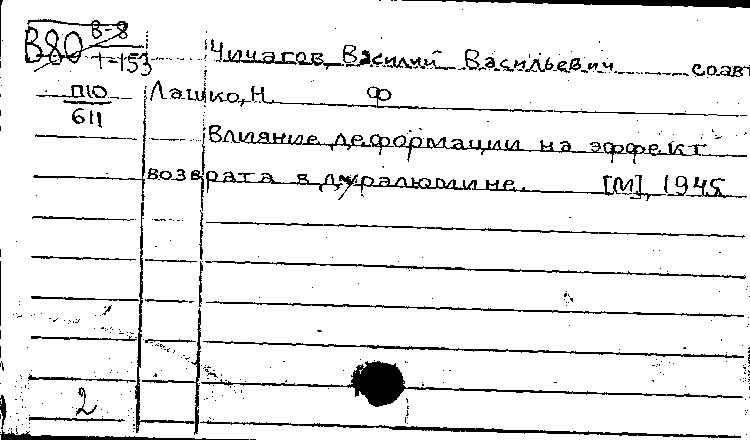 В80 В-8
Т-153
Чичагов, Василий Васильевич соавт
П10 Лашко, Н. Ф
611
Влияние деформации на эффект
возврата в дуралюмине. [М], 1945
2